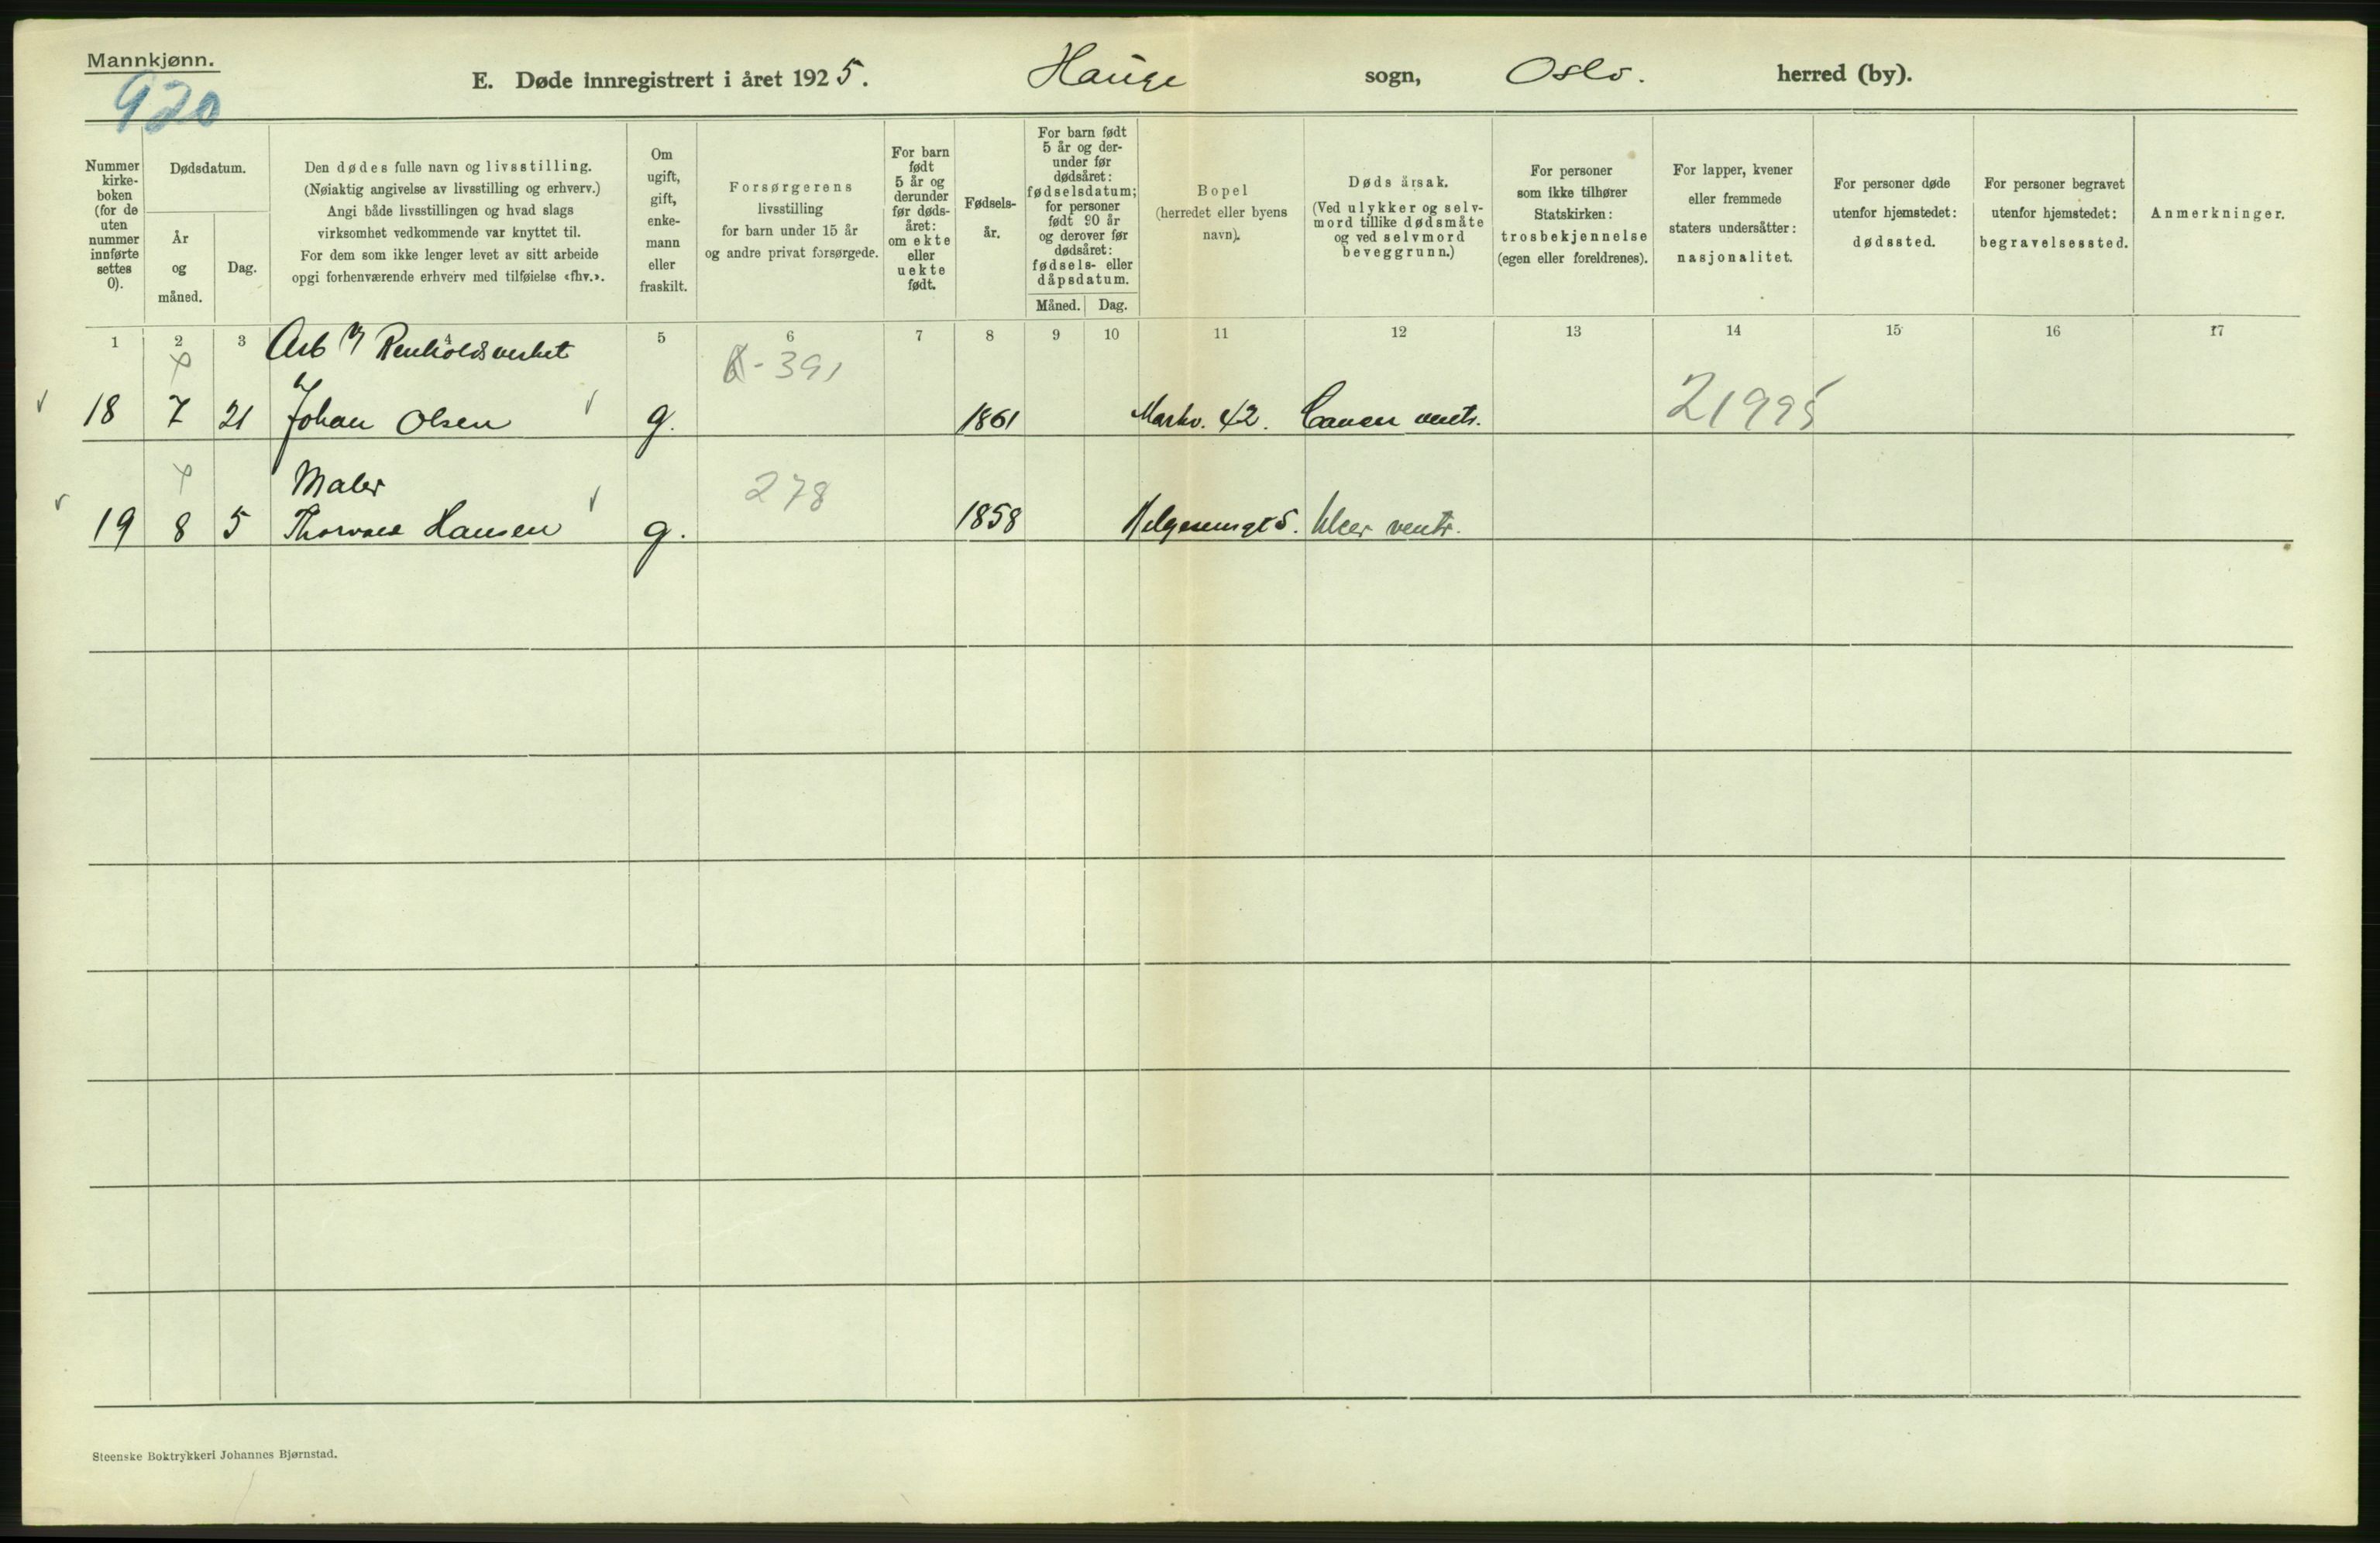 Mannkjønn.
920
E. Døde innregistrert i året 1925. Hauge sogn, Oslo. herred (by).
Nummer kirke- boken (for de uten nummer innførte settes 0).
Dødsdatum.
År og måned.
Dag.
Den dødes fulle navn og livsstilling.
(Nøiaktig angivelse av livsstilling og erhverv.)
Angi både livsstillingen og hvad slags
virksomhet vedkommende var knyttet til.
For dem som ikke lenger levet av sitt arbeide
opgi forhenværende erhverv med tilføielse «fhv.».
Om ugift, gift, enke- mann eller fraskilt.
Forsørgerens
livsstilling
for barn under 15 år
og andre privat forsørgede.
For barn født 5 år og derunder før døds- året: om ekte eller uekte født.
Fødsels- år.
For barn født 5 år og der- under før dødsåret: fødselsdatum; for personer født 90 år og derover før dødsåret: fødsels- eller dåpsdatum.
Måned. Dag.
Bopel
(herredet eller byens
navn).
Dødsårsak.
(Ved ulykker og selv-
mord tillike dødsmåte
og ved selvmord
beveggrunn.)
For personer
som ikke tilhører
Statskirken:
trosbekjennelse
(egen eller foreldrenes).
For lapper, kvener
eller fremmede
staters undersåtter:
nasjonalitet.
For personer døde
utenfor hjemstedet:
dødssted.
For personer begravet
utenfor hjemstedet:
begravelsessted.
Anmerkninger.
1 2 3 4 5 6 7 8 9 10 11 12 13 14 15 16 17
Arb v Renholdsverket
391
18 7 21 Johan Olsen g. 1861 Markv. 42. Cancer ventr. 21995
Maler
278
19 8 5 Thorvald Hansen g. 1858 Helgesensgt 5. Ulcer ventr.
Steenske Boktrykkeri Johannes Bjørnstad.